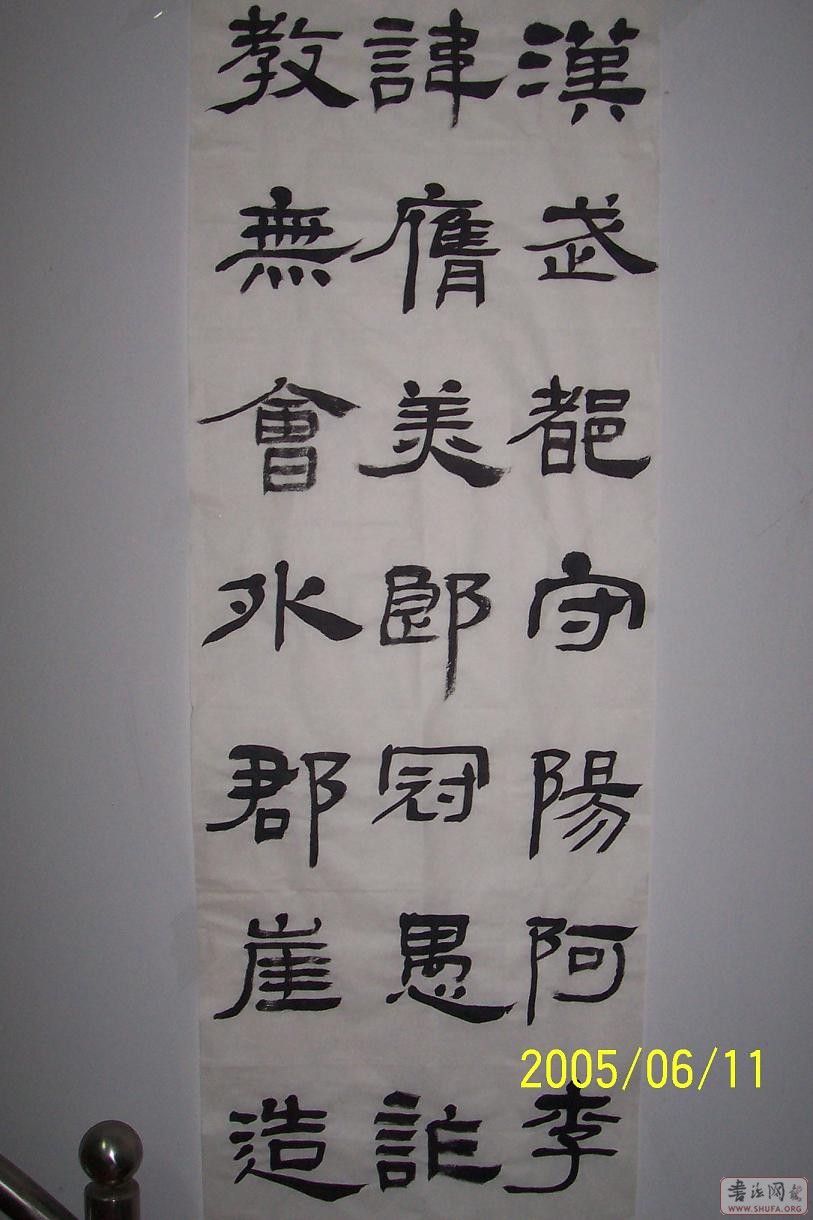 漢武都守陽阿李
諱膺美郎冠愚詐
教無會外郡崖造
2005/06/11
书法网
WWW.SHUFA.ORG